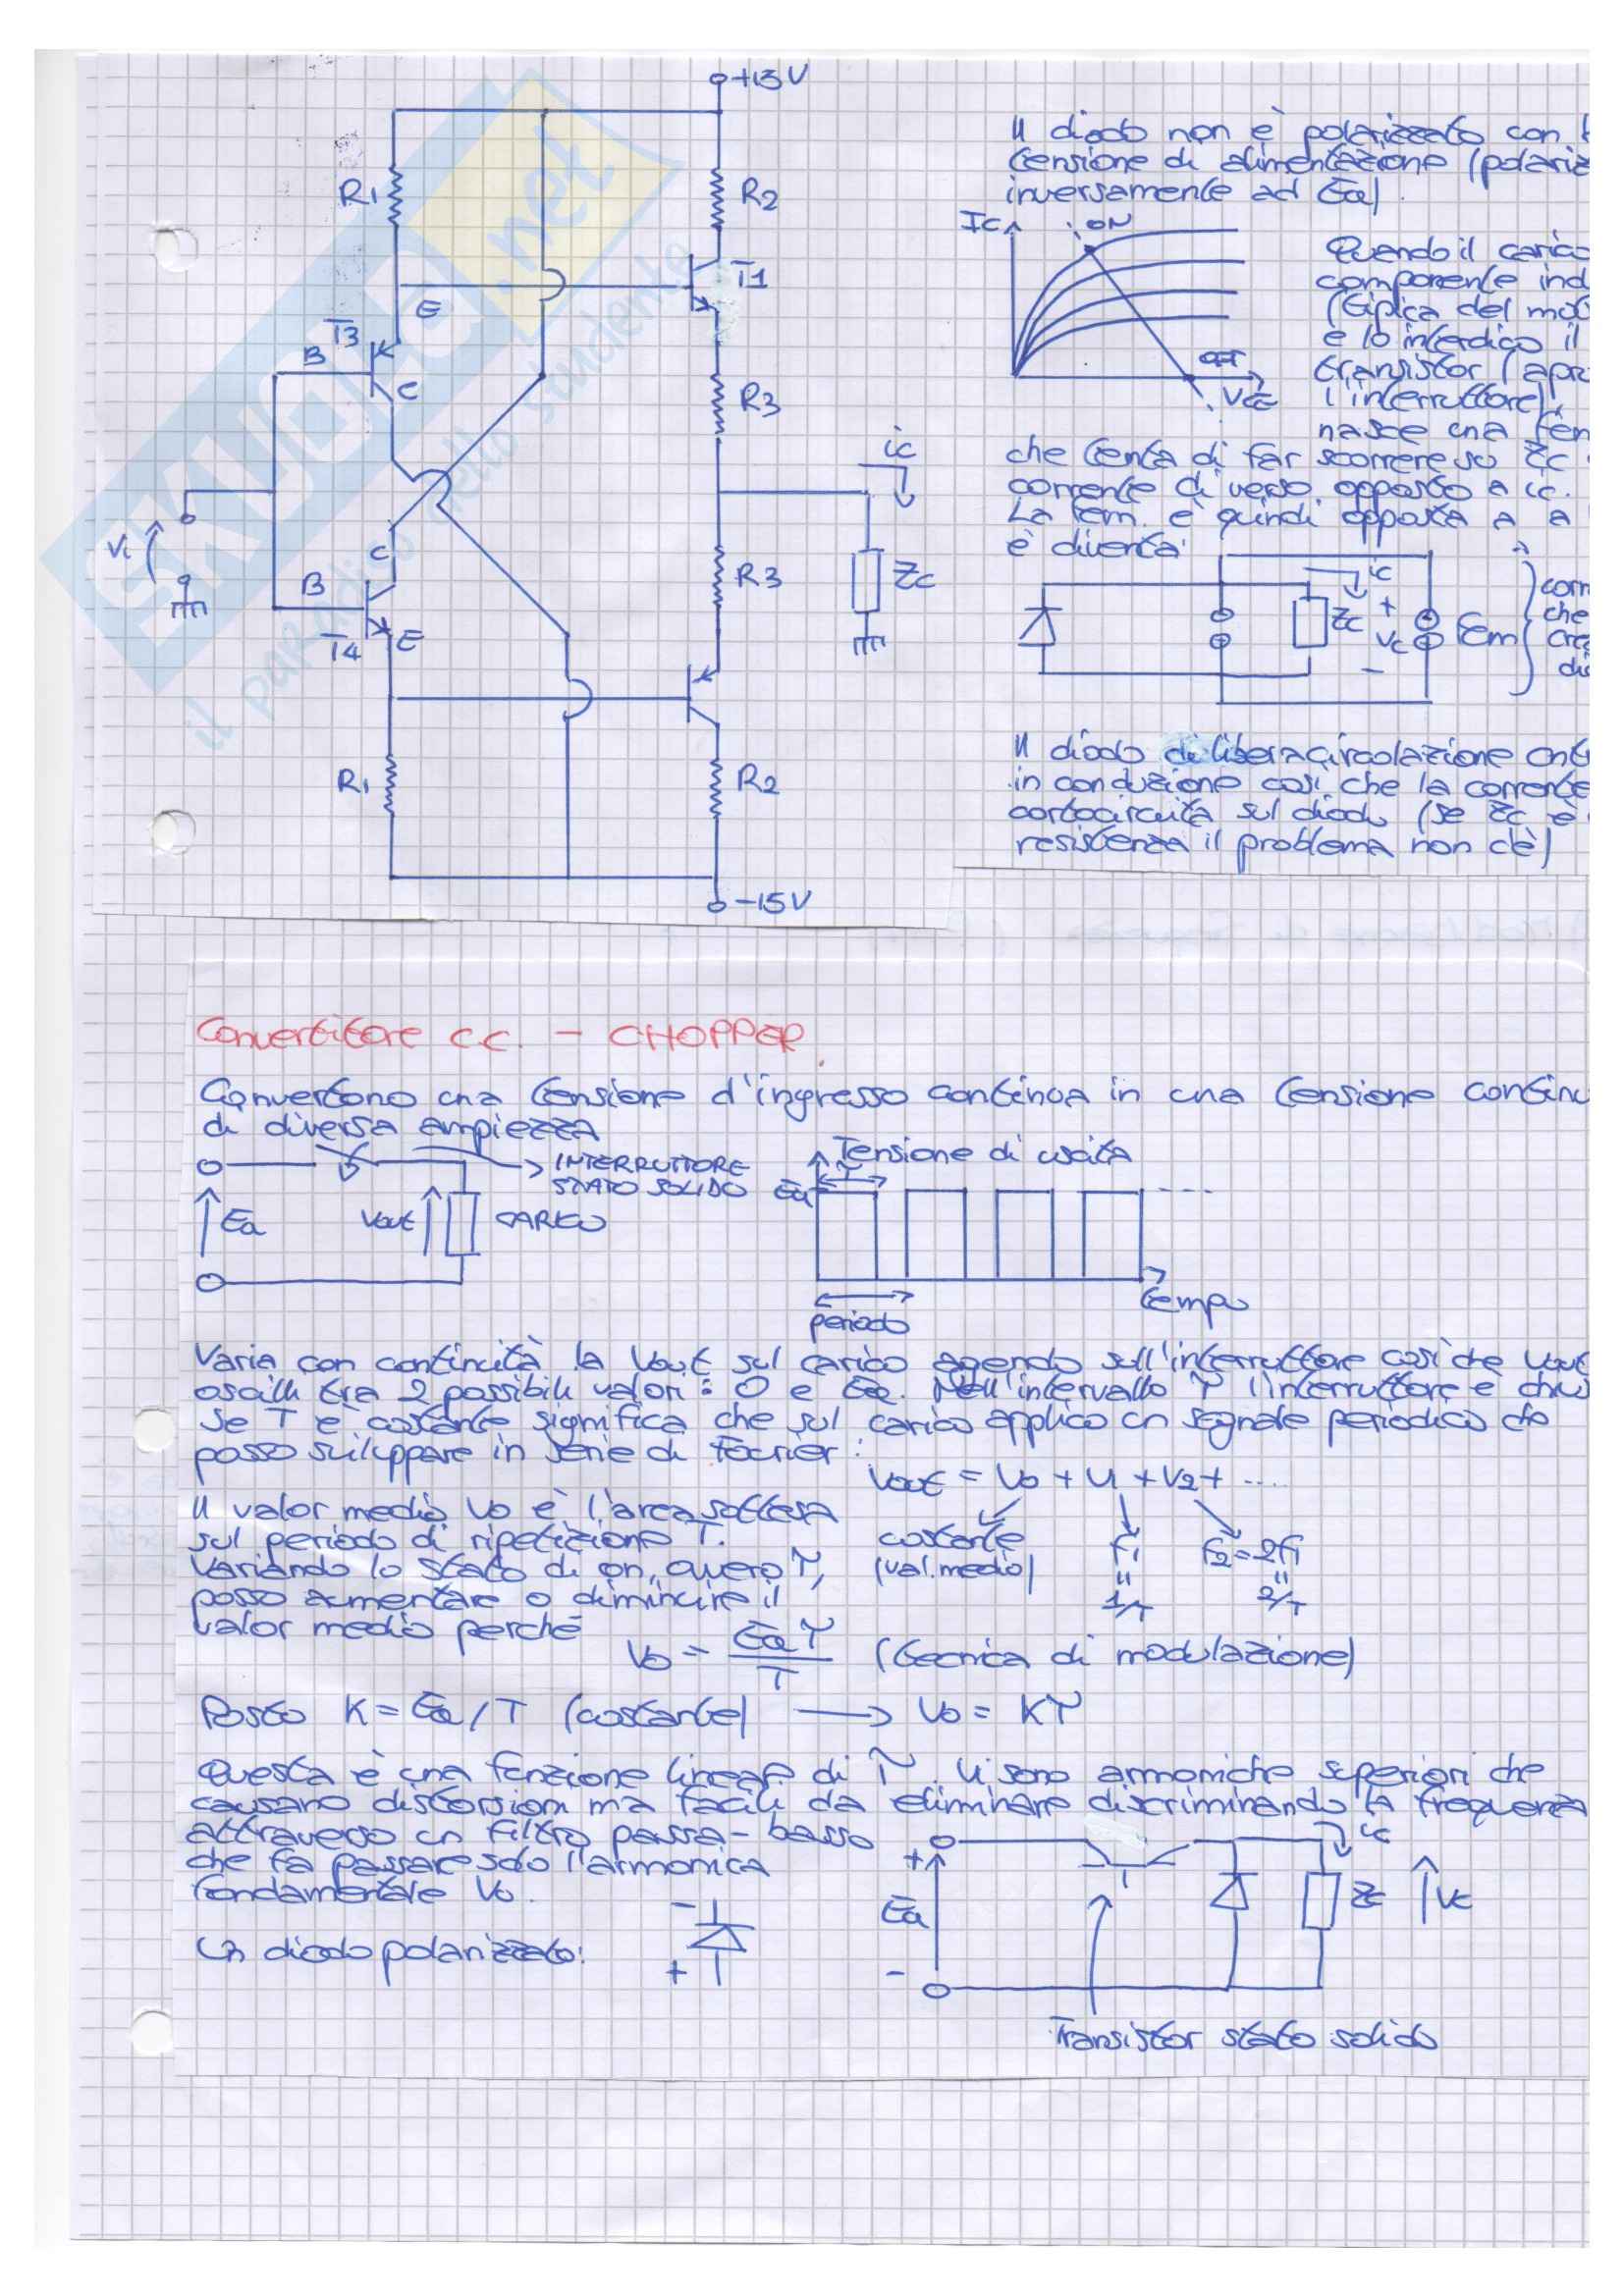 +15V
R1
R2
T1
E
T3
B
C
R3
ic
Vi
C
B
T4
E
R3
Zc
R1
R2
-15V
Il diodo non è polarizzato con
tensione di alimentazione (polariz
inversamente ad Ea)
Ic
ON
OFF
VCE
Quando il carico
componente ind
(tipica del mot
e lo interdico il
transistor (apro
l'interruttore),
nasce una fem
che tenta di far scorrere su Zc
corrente di verso opposto a ic.
La fem. è quindi opposta a a
è diventa
ic
+
Zc
Vc
-
fem
corr
che
crea
dio
Il diodo di libera circolazione ent
in conduzione così che la corrente
cortocircuita sul diodo (se Zc è
resistenza il problema non c'è)
Convertitore c.c. - CHOPPER
Convertono una tensione d'ingresso continua in una tensione continu
di diversa ampiezza
INTERRUTTORE
STATO SOLIDO
Ea
Vout
CARICO
Tensione di uscita
τ
Ea
tempo
periodo
Varia con continuità la Vout sul carico agendo sull'interruttore così che Vout
oscilli tra 2 possibili valori: 0 e Ea. Nell'intervallo τ l'interruttore è chius
Se T è costante significa che sul carico applico un segnale periodico che
posso sviluppare in serie di Fourier:
Vout = V0 + V1 + V2 + ....
Il valor medio V0 è l'area sottesa
sul periodo di ripetizione T.
Variando lo stato di on, ovvero τ,
posso aumentare o diminuire il
valor medio perché
costante
(val. medio)
f1
=
1/T
f2=2f1
=
2/T
V0 = Eaτ/T (tecnica di modulazione)
Posto K = Ea/T (costante) → V0 = Kτ
Questa è una funzione lineare di τ. Vi sono armoniche superiori che
causano distorsioni ma facili da eliminare discriminando la frequenza
attraverso un filtro passa-basso
che fa passare solo l'armonica
fondamentale V0.
Un diodo polarizzato:
-
+
+
Ea
-
ic
Zc
Vc
Transistor stato solido
SKUOLA.net
il paradiso dello studente